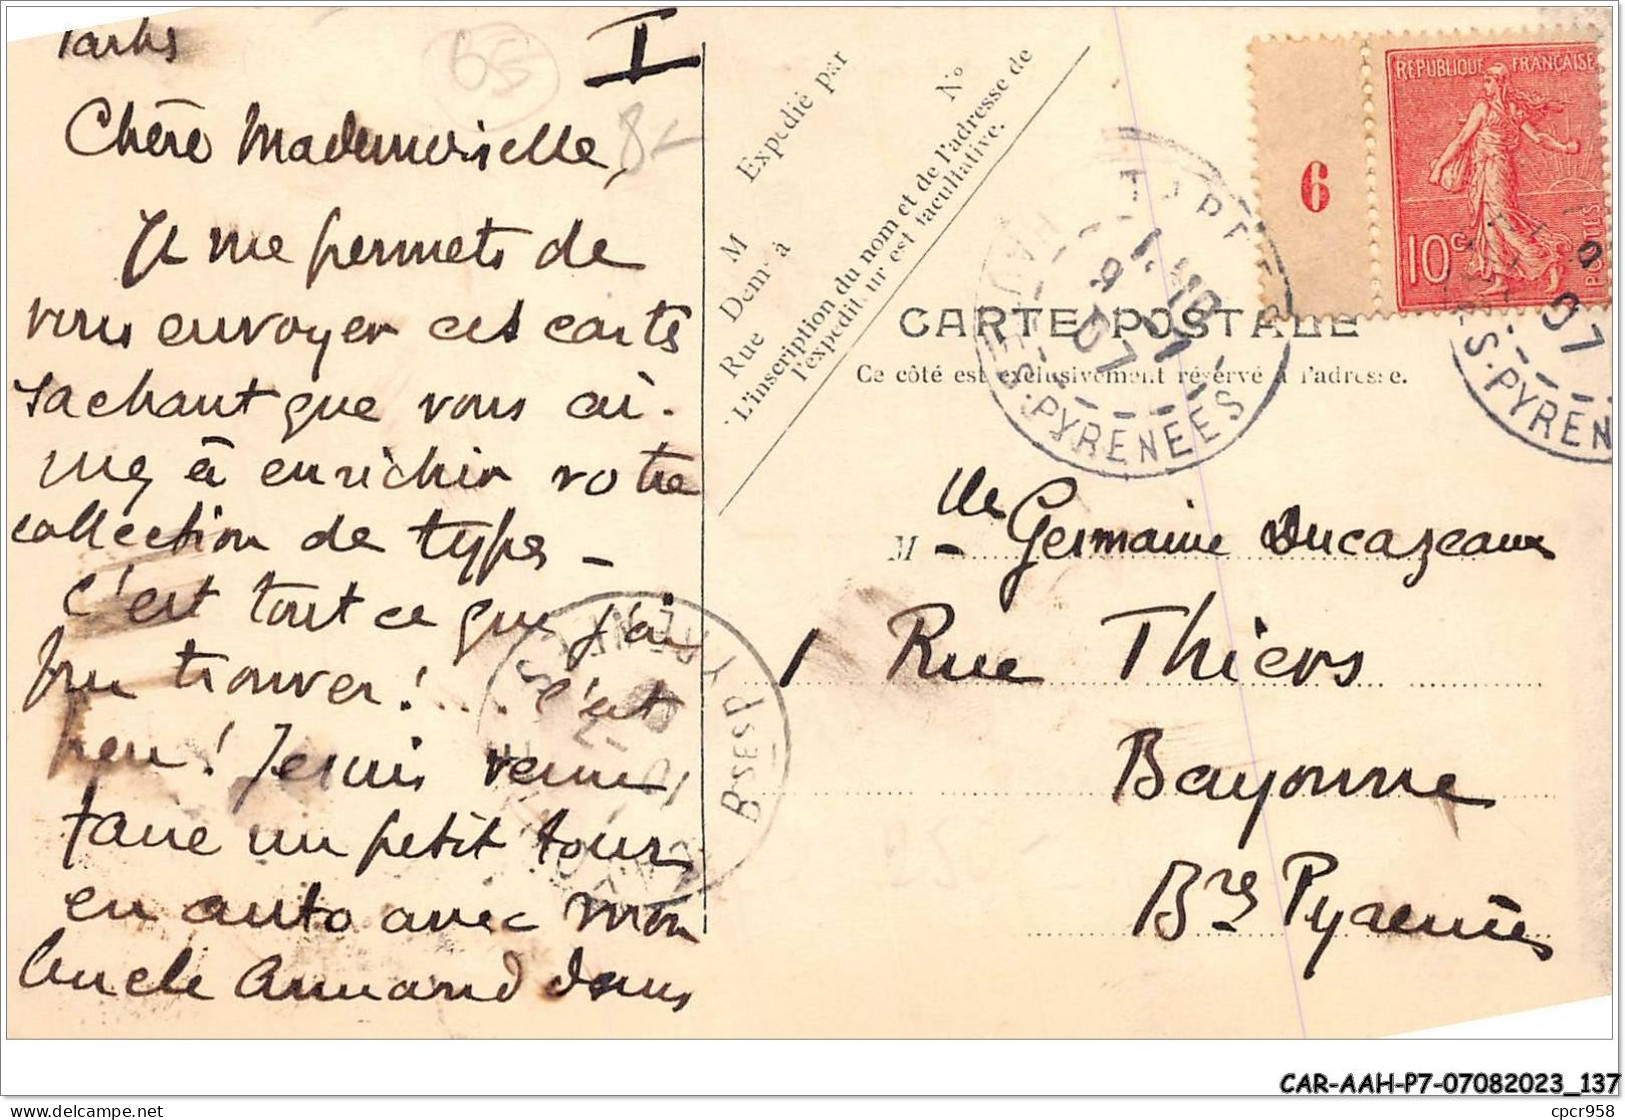 Tarbes
I
65
8-
Chère Mademoiselle,
Je me permets de
vous envoyer ces cartes
sachant que vous ai-
mez à enrichir votre
collection de types -
c'est tout ce que j'ai
pu trouver! .... c'est
peu! Je suis venue
faire un petit tour
en auto avec mon
Oncle Armand dans
M Expédié par
M
Demt à
Rue N°
L'inscription du nom et de l'adresse de
l'expéditeur est facultative.
RÉPUBLIQUE FRANÇAISE
6
10c
POSTES
TARBES
HAUTES-PYRENEES
9 07
S-PYREN
07
CARTE POSTALE
Ce côté est exclusivement réservé à l'adresse.
Mlle Germaine Ducazeaux
1 Rue Thiers
Bayonne
Bses Pyrénées
BSES PYRENEES
250-
CAR-AAH-P7-07082023_137
delcampe.net
cpcr958